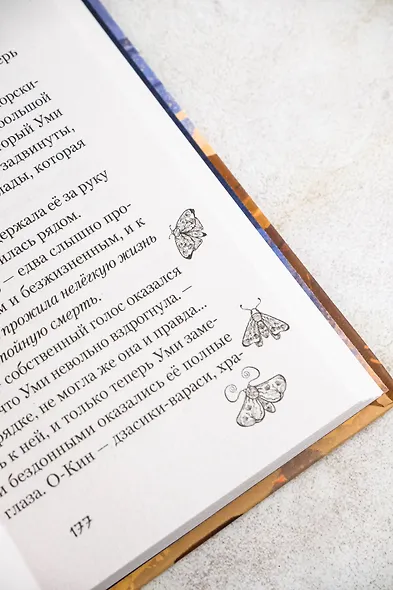 ерь
орски-
большой
торый Уми
задвинуты,
лады, которая
держала её за руку
илась рядом.
— едва слышно про-
м и безжизненным, и к
прожила нелёгкую жизнь
пойную смерть.
собственный голос оказался
что Уми невольно вздрогнула. —
орядке, не могла же она и правда...
ь к ней, и только теперь Уми заме-
и бездонными оказались её полные
глаза. О-Кин — дзасики-вараси, хра-
177